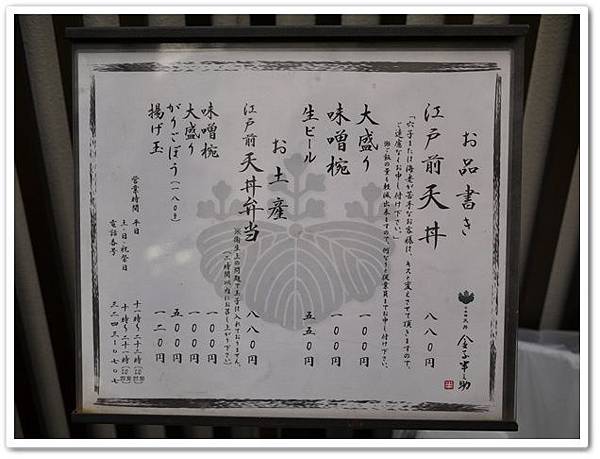 お品書き
江戸前天丼 八八〇円
「穴子または海老が苦手なお客様は、キスに変えさせて頂きますので、
ご遠慮なくお申し付け下さい。」
※ご飯の量も軽減出来ますので、何なりと従業員までお申し付け下さい。
大盛り 一〇〇円
味噌椀 一〇〇円
生ビール 五五〇円
お土産
江戸前天丼弁当 八八〇円
※衛生上の問題で玉子は入れておりません。
(二時間以内にお召し上がり下さい)
味噌椀 一〇〇円
大盛り 一〇〇円
がりごぼう(一八〇g) 五〇〇円
揚げ玉 一二〇円
営業時間 平日 十一時～二十二時
土・日・祝祭日 十時～二十一時
電話番号 三二四三―〇七〇七
金子半之助